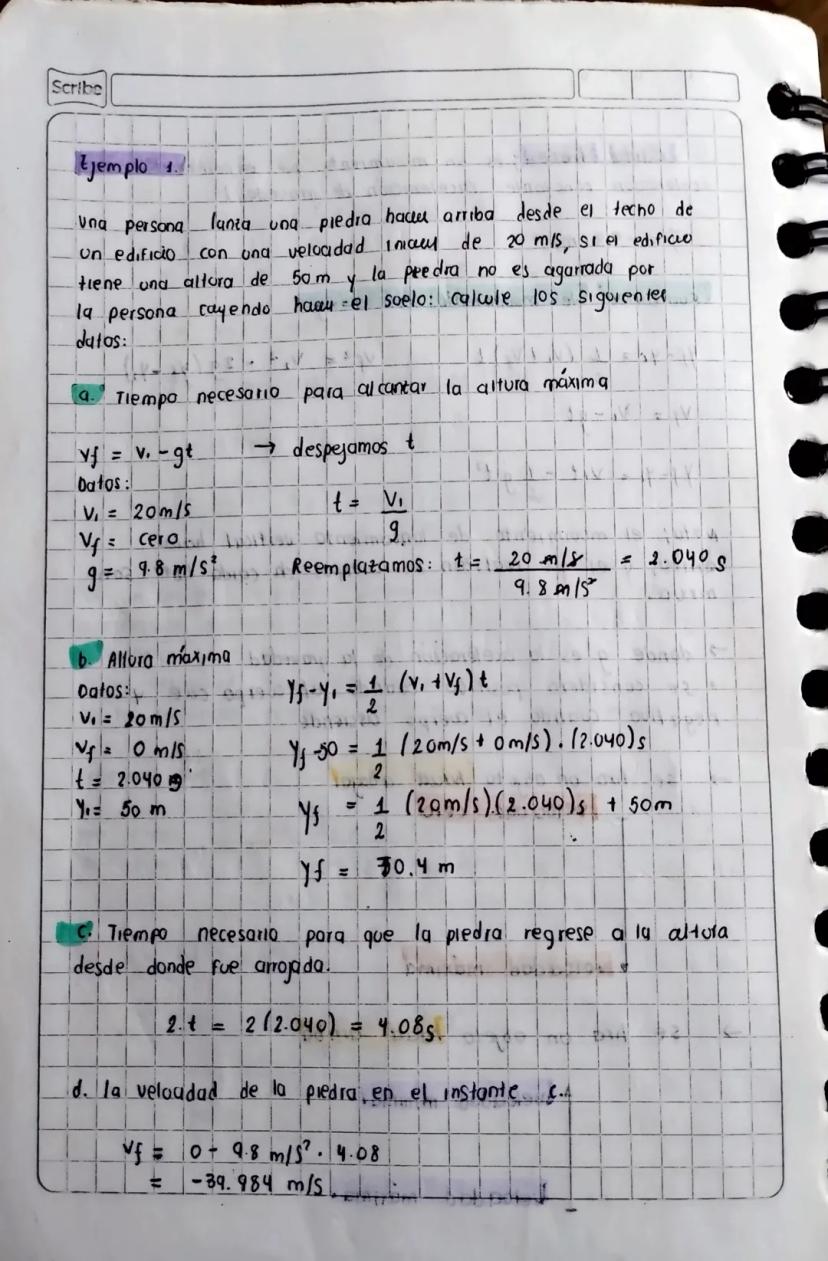 Scribe
Ejemplo 1.
Una persona lanza una piedra hacia arriba desde el techo de
un edificio con una velocidad inicial de 20 m/s, si el edificio
tiene una altura de 50m y la piedra no es agarrada por
la persona cayendo hacia el suelo: calcule los siguientes
datos:
a. Tiempo necesario para alcanzar la altura máxima
vf = v₁ - gt → despejamos t
Datos:
V₁ = 20m/s t = V₁/g
Vf = cero
g = 9.8 m/s² Reemplazamos: t = 20 m/s / 9.8 m/s² = 2.040 s
b. Altura máxima
Datos: Yf - Y₁ = 1/2 (v₁ + vf) t
V₁ = 20m/s
Vf = 0 m/s Yf - 50 = 1/2 (20m/s + 0m/s) . (2.040)s
t = 2.040 s
Y₁ = 50 m Yf = 1/2 (20m/s).(2.040)s + 50m
Yf = 70.4 m
c. Tiempo necesario para que la piedra regrese a la altura
desde donde fue arrojada.
2.t = 2(2.040) = 4.08s.
d. la velocidad de la piedra en el instante c.
Vf = 0 - 9.8 m/s² . 4.08
= -39.984 m/s.